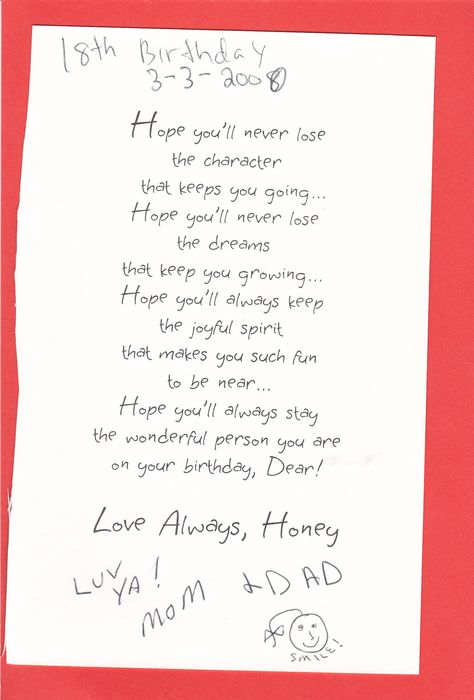 18th Birthday
3-3-2008
Hope you'll never lose
the character
that keeps you going...
Hope you'll never lose
the dreams
that keep you growing...
Hope you'll always keep
the joyful spirit
that makes you such fun
to be near...
Hope you'll always stay
the wonderful person you are
on your birthday, Dear!
Love Always, Honey
LUV YA!
MOM & DAD
SMILE!